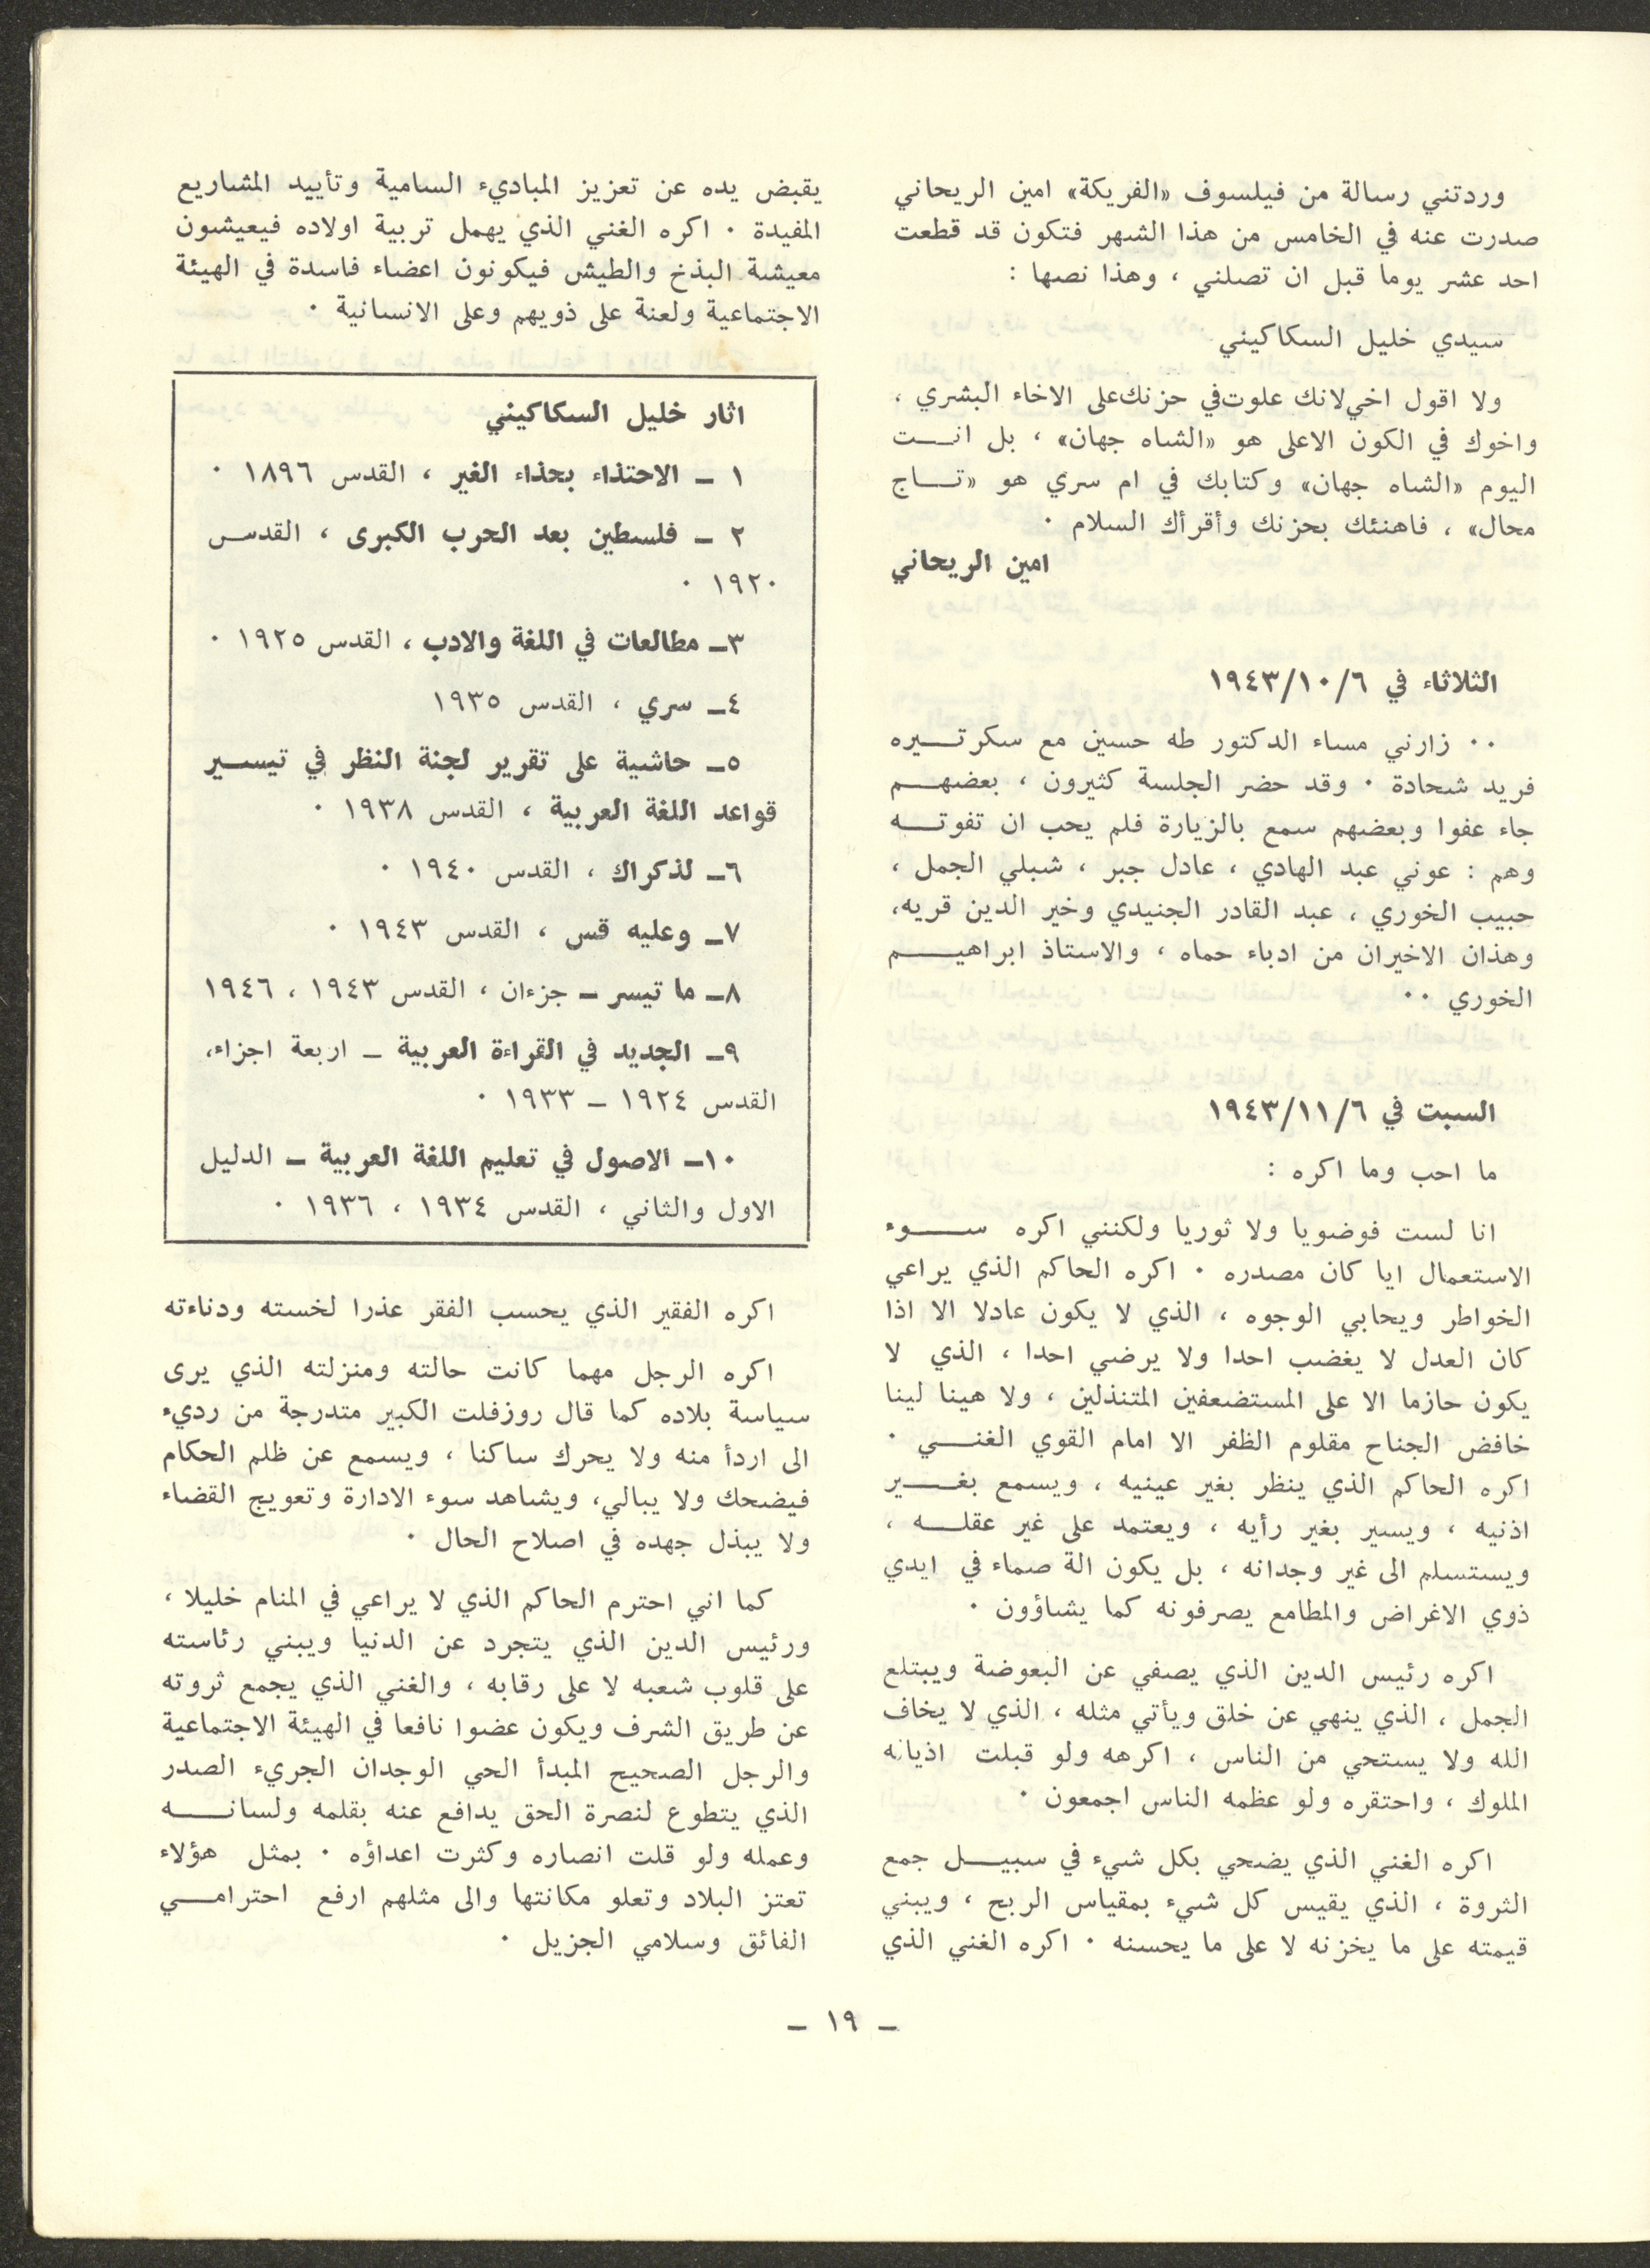 وردتني رسالة من فيلسوف «الفريكة» امين الريحاني
صدرت عنه في الخامس من هذا الشهر فتكون قد قطعت
احد عشر يوما قبل ان تصلني ، وهذا نصها :
سيدي خليل السكاكيني
ولا اقول اخي لانك علوت في حزنك على الاخاء البشري ،
واخوك في الكون الاعلى هو «الشاه جهان» ، بل انـــت
اليوم «الشاه جهان» وكتابك في ام سري هو «تـــاج
محال» ، فاهنئك بحزنك وأقرأك السلام ٠
امين الريحاني
الثلاثاء في ١٩٤٣/١٠/٦
٠٠ زارني مساء الدكتور طه حسين مع سكرتـــيره
فريد شحادة ٠ وقد حضر الجلسة كثيرون ، بعضهـــم
جاء عفوا وبعضهم سمع بالزيارة فلم يحب ان تفوتـــه
وهم : عوني عبد الهادي ، عادل جبر ، شبلي الجمل ،
حبيب الخوري ، عبد القادر الجنيدي وخير الدين قريه،
وهذان الاخيران من ادباء حماه ، والاستاذ ابراهيـــم
الخوري ٠٠
السبت في ١٩٤٣/١١/٦
ما احب وما اكره :
انا لست فوضويا ولا ثوريا ولكنني اكره ســـوء
الاستعمال ايا كان مصدره ٠ اكره الحاكم الذي يراعي
الخواطر ويحابي الوجوه ، الذي لا يكون عادلا الا اذا
كان العدل لا يغضب احدا ولا يرضي احدا ، الذي لا
يكون حازما الا على المستضعفين المتنذلين ، ولا هينا لينا
خافض الجناح مقلوم الظفر الا امام القوي الغنـــي ٠
اكره الحاكم الذي ينظر بغير عينيه ، ويسمع بغـــير
اذنيه ، ويسير بغير رأيه ، ويعتمد على غير عقلـــه ،
ويستسلم الى غير وجدانه ، بل يكون الة صماء في ايدي
ذوي الاغراض والمطامع يصرفونه كما يشاؤون ٠
اكره رئيس الدين الذي يصفي عن البعوضة ويبتلع
الجمل ، الذي ينهي عن خلق ويأتي مثله ، الذي لا يخاف
الله ولا يستحي من الناس ، اكرهه ولو قبلت اذياله
الملوك ، واحتقره ولو عظمه الناس اجمعون ٠
اكره الغني الذي يضحي بكل شيء في سبيـــل جمع
الثروة ، الذي يقيس كل شيء بمقياس الربح ، ويبني
قيمته على ما يخزنه لا على ما يحسنه ٠ اكره الغني الذي
يقبض يده عن تعزيز المباديء السامية وتأييد المشاريع
المفيدة ٠ اكره الغني الذي يهمل تربية اولاده فيعيشون
معيشة البذخ والطيش فيكونون اعضاء فاسدة في الهيئة
الاجتماعية ولعنة على ذويهم وعلى الانسانية ٠
اثار خليل السكاكيني
١ ـ الاحتذاء بحذاء الغير ، القدس ١٨٩٦ ٠
٢ ـ فلسطين بعد الحرب الكبرى ، القدس
١٩٢٠ ٠
٣ـ مطالعات في اللغة والادب ، القدس ١٩٢٥ ٠
٤ـ سري ، القدس ١٩٣٥
٥ـ حاشية على تقرير لجنة النظر في تيســـير
قواعد اللغة العربية ، القدس ١٩٣٨ ٠
٦ـ لذكراك ، القدس ١٩٤٠ ٠
٧ـ وعليه قس ، القدس ١٩٤٣ ٠
٨ـ ما تيسر ـ جزءان ، القدس ١٩٤٣ ، ١٩٤٦
٩ـ الجديد في القراءة العربية ـ اربعة اجزاء،
القدس ١٩٢٤ ـ ١٩٣٣ ٠
١٠ـ الاصول في تعليم اللغة العربية ـ الدليل
الاول والثاني ، القدس ١٩٣٤ ، ١٩٣٦ ٠
اكره الفقير الذي يحسب الفقر عذرا لخسته ودناءته
اكره الرجل مهما كانت حالته ومنزلته الذي يرى
سياسة بلاده كما قال روزفلت الكبير متدرجة من رديء
الى اردأ منه ولا يحرك ساكنا ، ويسمع عن ظلم الحكام
فيضحك ولا يبالي، ويشاهد سوء الادارة وتعويج القضاء
ولا يبذل جهده في اصلاح الحال ٠
كما اني احترم الحاكم الذي لا يراعي في المنام خليلا ،
ورئيس الدين الذي يتجرد عن الدنيا ويبني رئاسته
على قلوب شعبه لا على رقابه ، والغني الذي يجمع ثروته
عن طريق الشرف ويكون عضوا نافعا في الهيئة الاجتماعية
والرجل الصحيح المبدأ الحي الوجدان الجريء الصدر
الذي يتطوع لنصرة الحق يدافع عنه بقلمه ولسانـــه
وعمله ولو قلت انصاره وكثرت اعداؤه ٠ بمثل هؤلاء
تعتز البلاد وتعلو مكانتها والى مثلهم ارفع احترامـــي
الفائق وسلامي الجزيل ٠
ـ ١٩ ـ